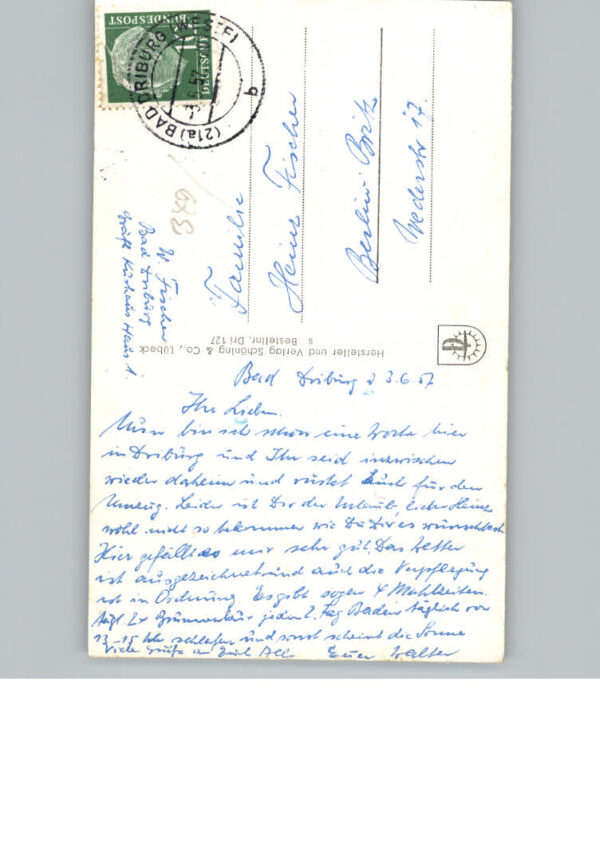 DEUTSCHE BUNDESPOST
(21a) BAD DRIBURG (WESTF)
b
Familie
Heinz Fischer
Berlin-Britz
W. Fischer
Bad Driburg
Gräfl. Kurhaus Haus 1.
Hersteller und Verlag Schöning & Co., Lübeck
s Bestellnr. Dri 127
Bad Driburg d 3.6.57
Ihr Lieben.
Nun bin ich schon eine Woche hier
in Driburg und Ihr seid inzwischen
wieder daheim und rüstet Euch für den
Umzug. Leider ist Dir der Urlaub, lieber Heinz
wohl nicht so bekommen wie Du Dir es wünschtest
Hier gefällt es mir sehr gut. Das Wetter
ist ausgezeichnet und auch die Verpflegung
ist in Ordnung. Es gibt sogar 4 Mahlzeiten.
tägl. 2x Brunnenkur jeden 2. Tag Baden täglich von
13-15 Uhr schlafen und sonst scheint die Sonne
Viele Grüße an Euch Alle Euer Walter